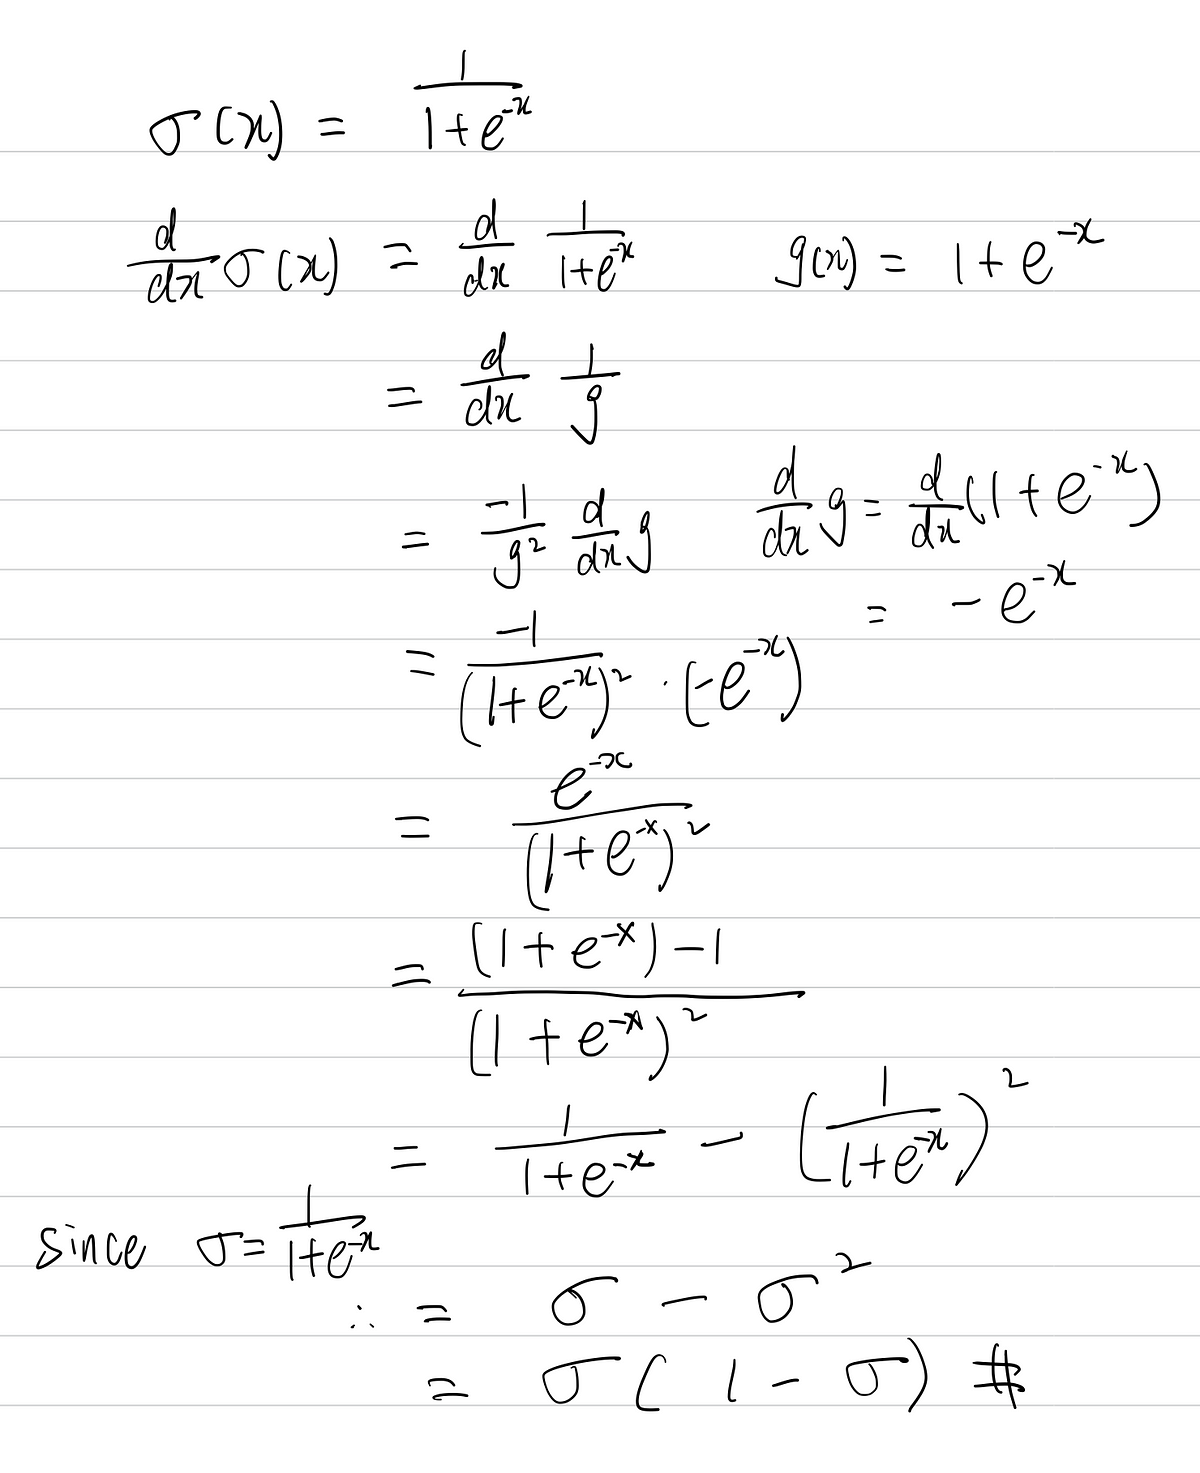 σ(x) = 1/(1+e^{-x})
d/dx σ(x) = d/dx 1/(1+e^{-x})    g(x) = 1+e^{-x}
= d/dx 1/g
= -1/g² d/dx g    d/dx g = d/dx (1+e^{-x})
= -e^{-x}
= -1/(1+e^{-x})² · (-e^{-x})
= e^{-x}/(1+e^{-x})²
= ((1+e^{-x})-1)/(1+e^{-x})²
= 1/(1+e^{-x}) - (1/(1+e^{-x}))²
since σ = 1/(1+e^{-x})
∴ = σ - σ²
= σ(1-σ) #